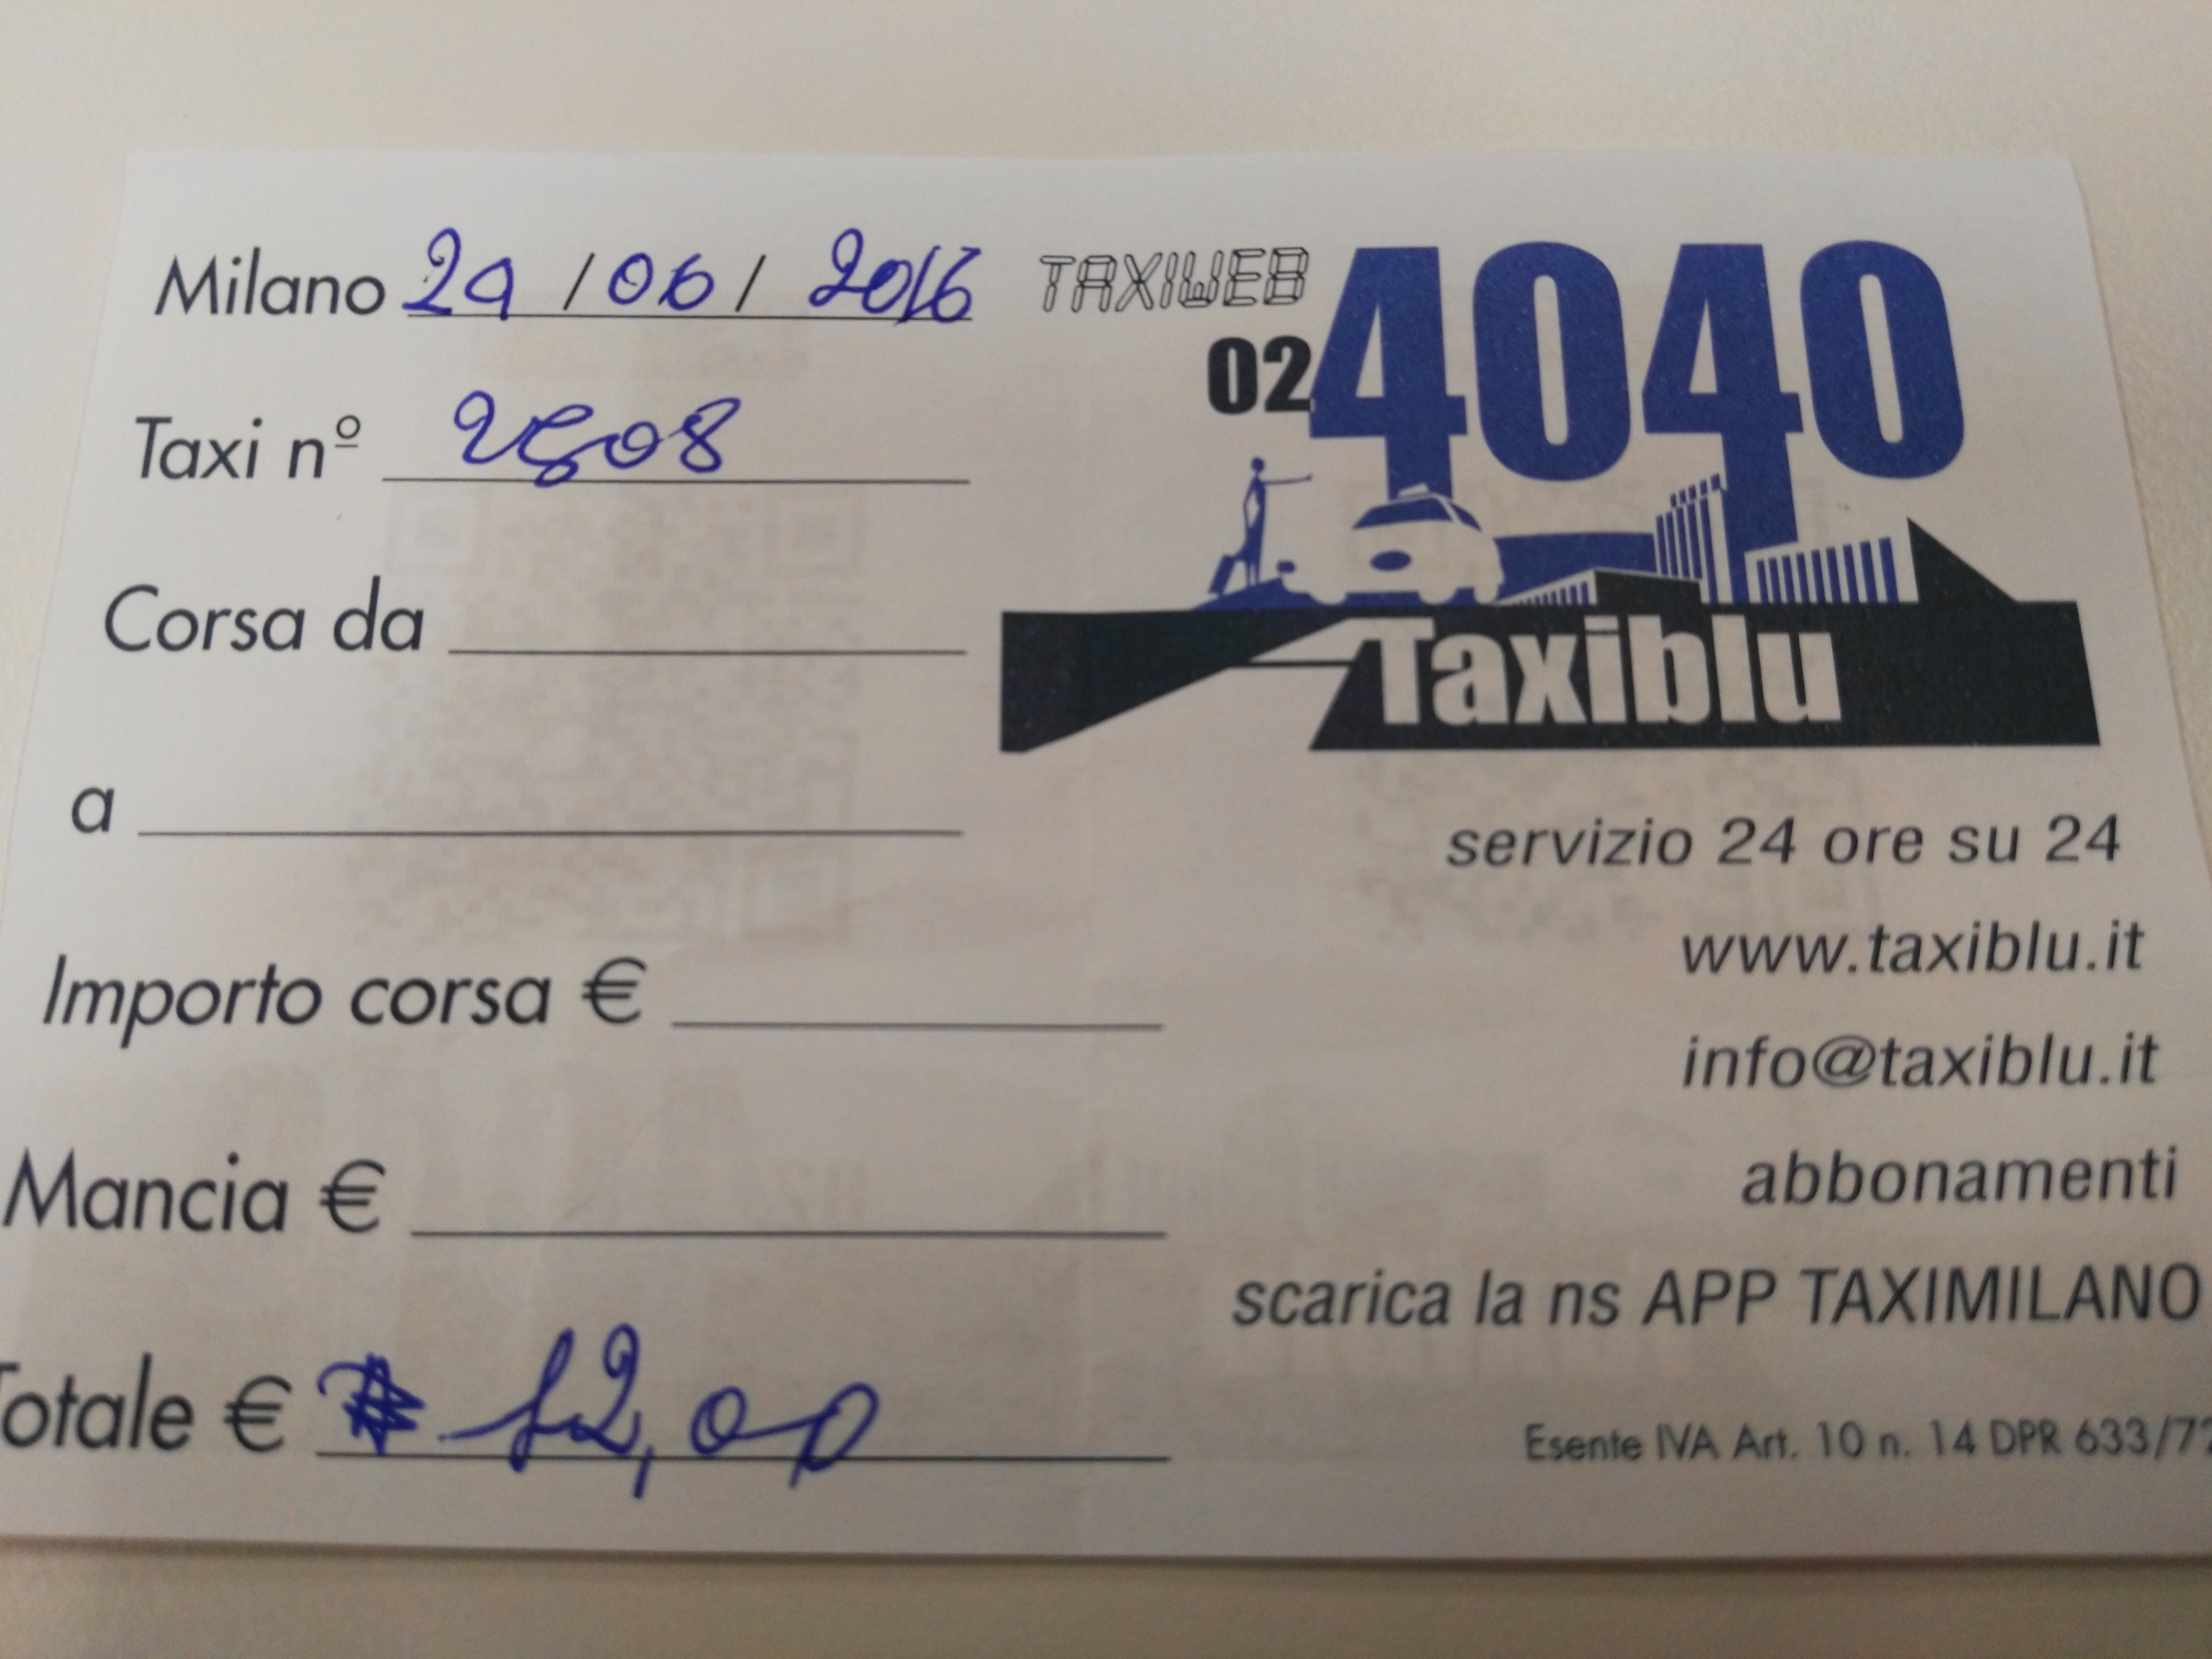 Milano 29 / 06 / 2016
Taxi nº 2508
Corsa da
a
Importo corsa €
Mancia €
Totale € 12,00
TAXIWEB
02 4040
Taxiblu
servizio 24 ore su 24
www.taxiblu.it
info@taxiblu.it
abbonamenti
scarica la ns APP TAXIMILANO
Esente IVA Art. 10 n. 14 DPR 633/72